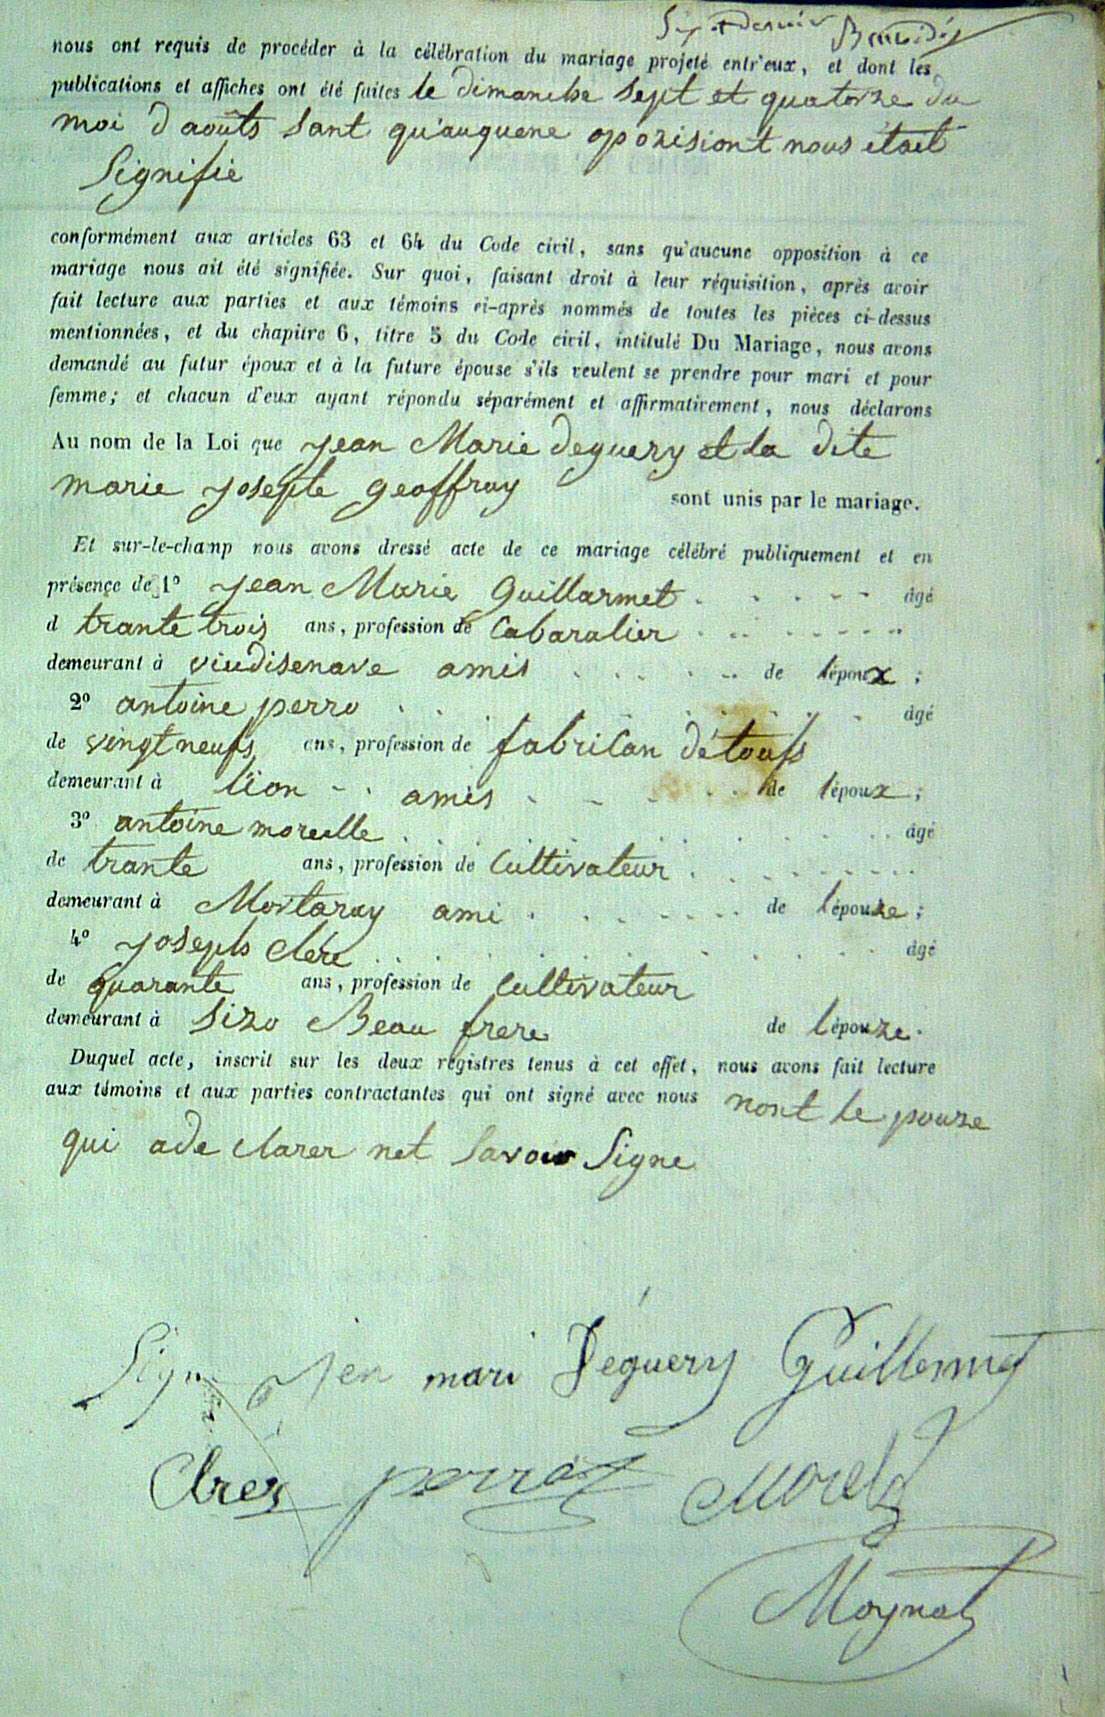 nous ont requis de procéder à la célébration du mariage projeté entr'eux, et dont les
publications et affiches ont été faites le dimanche sept et quatorze du
moi d'aoûts sant qu'auquene opozisiont nous était
Signifié
conformément aux articles 63 et 64 du Code civil, sans qu'aucune opposition à ce
mariage nous ait été signifiée. Sur quoi, faisant droit à leur réquisition, après avoir
fait lecture aux parties et aux témoins ci-après nommés de toutes les pièces ci-dessus
mentionnées, et du chapitre 6, titre 5 du Code civil, intitulé Du Mariage, nous avons
demandé au futur époux et à la future épouse s'ils veulent se prendre pour mari et pour
femme; et chacun d'eux ayant répondu séparément et affirmativement, nous déclarons
Au nom de la Loi que jean Marie deguery et la dite
marie josepte geoffray sont unis par le mariage.
Et sur-le-champ nous avons dressé acte de ce mariage célébré publiquement et en
présence de 1° jean Marie guillarmet âgé
d trante trois ans, profession de Cabaralier
demeurant à viudisenave amis de l'époux ;
2° antoine perro âgé
de vingt neufs ans, profession de fabrican détoufs
demeurant à lion amis de l'époux ;
3° antoine morelle âgé
de trante ans, profession de Cultivateur
demeurant à Mortaray ami de l'épouze ;
4° joseph clere âgé
de quarante ans, profession de Cultivateur
demeurant à Sizo Beau frere de l'épouze.
Duquel acte, inscrit sur les deux registres tenus à cet effet, nous avons fait lecture
aux témoins et aux parties contractantes qui ont signé avec nous nont le pouze
qui a de clarer net Savoir Signe
jen mari Déguery Guillermet
Clrer perrot Morel
Moynat